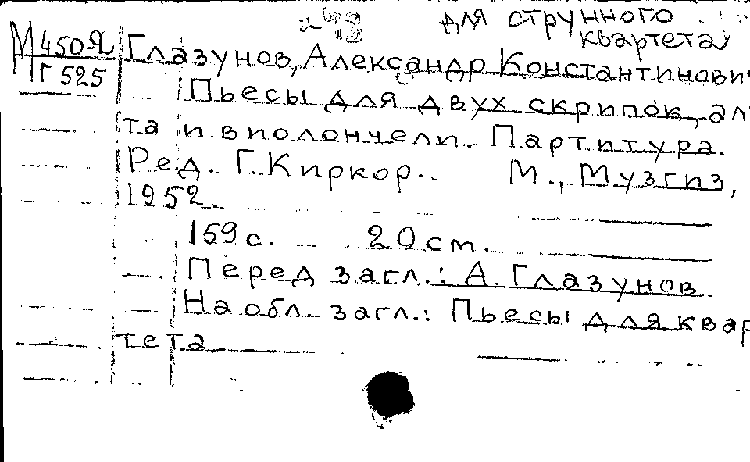 для струнного
квартета
М450Я
Г525
Глазунов, Александр Константинови
Пьесы для двух скрипок, аль
та и виолончели. Партитура.
Ред. Г. Киркор. М., Музгиз,
1952.
159 с. 20 см.
Перед загл.: А. Глазунов.
На обл. загл.: Пьесы для квар
тета